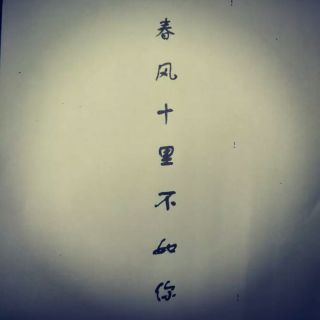 春风十里不如你